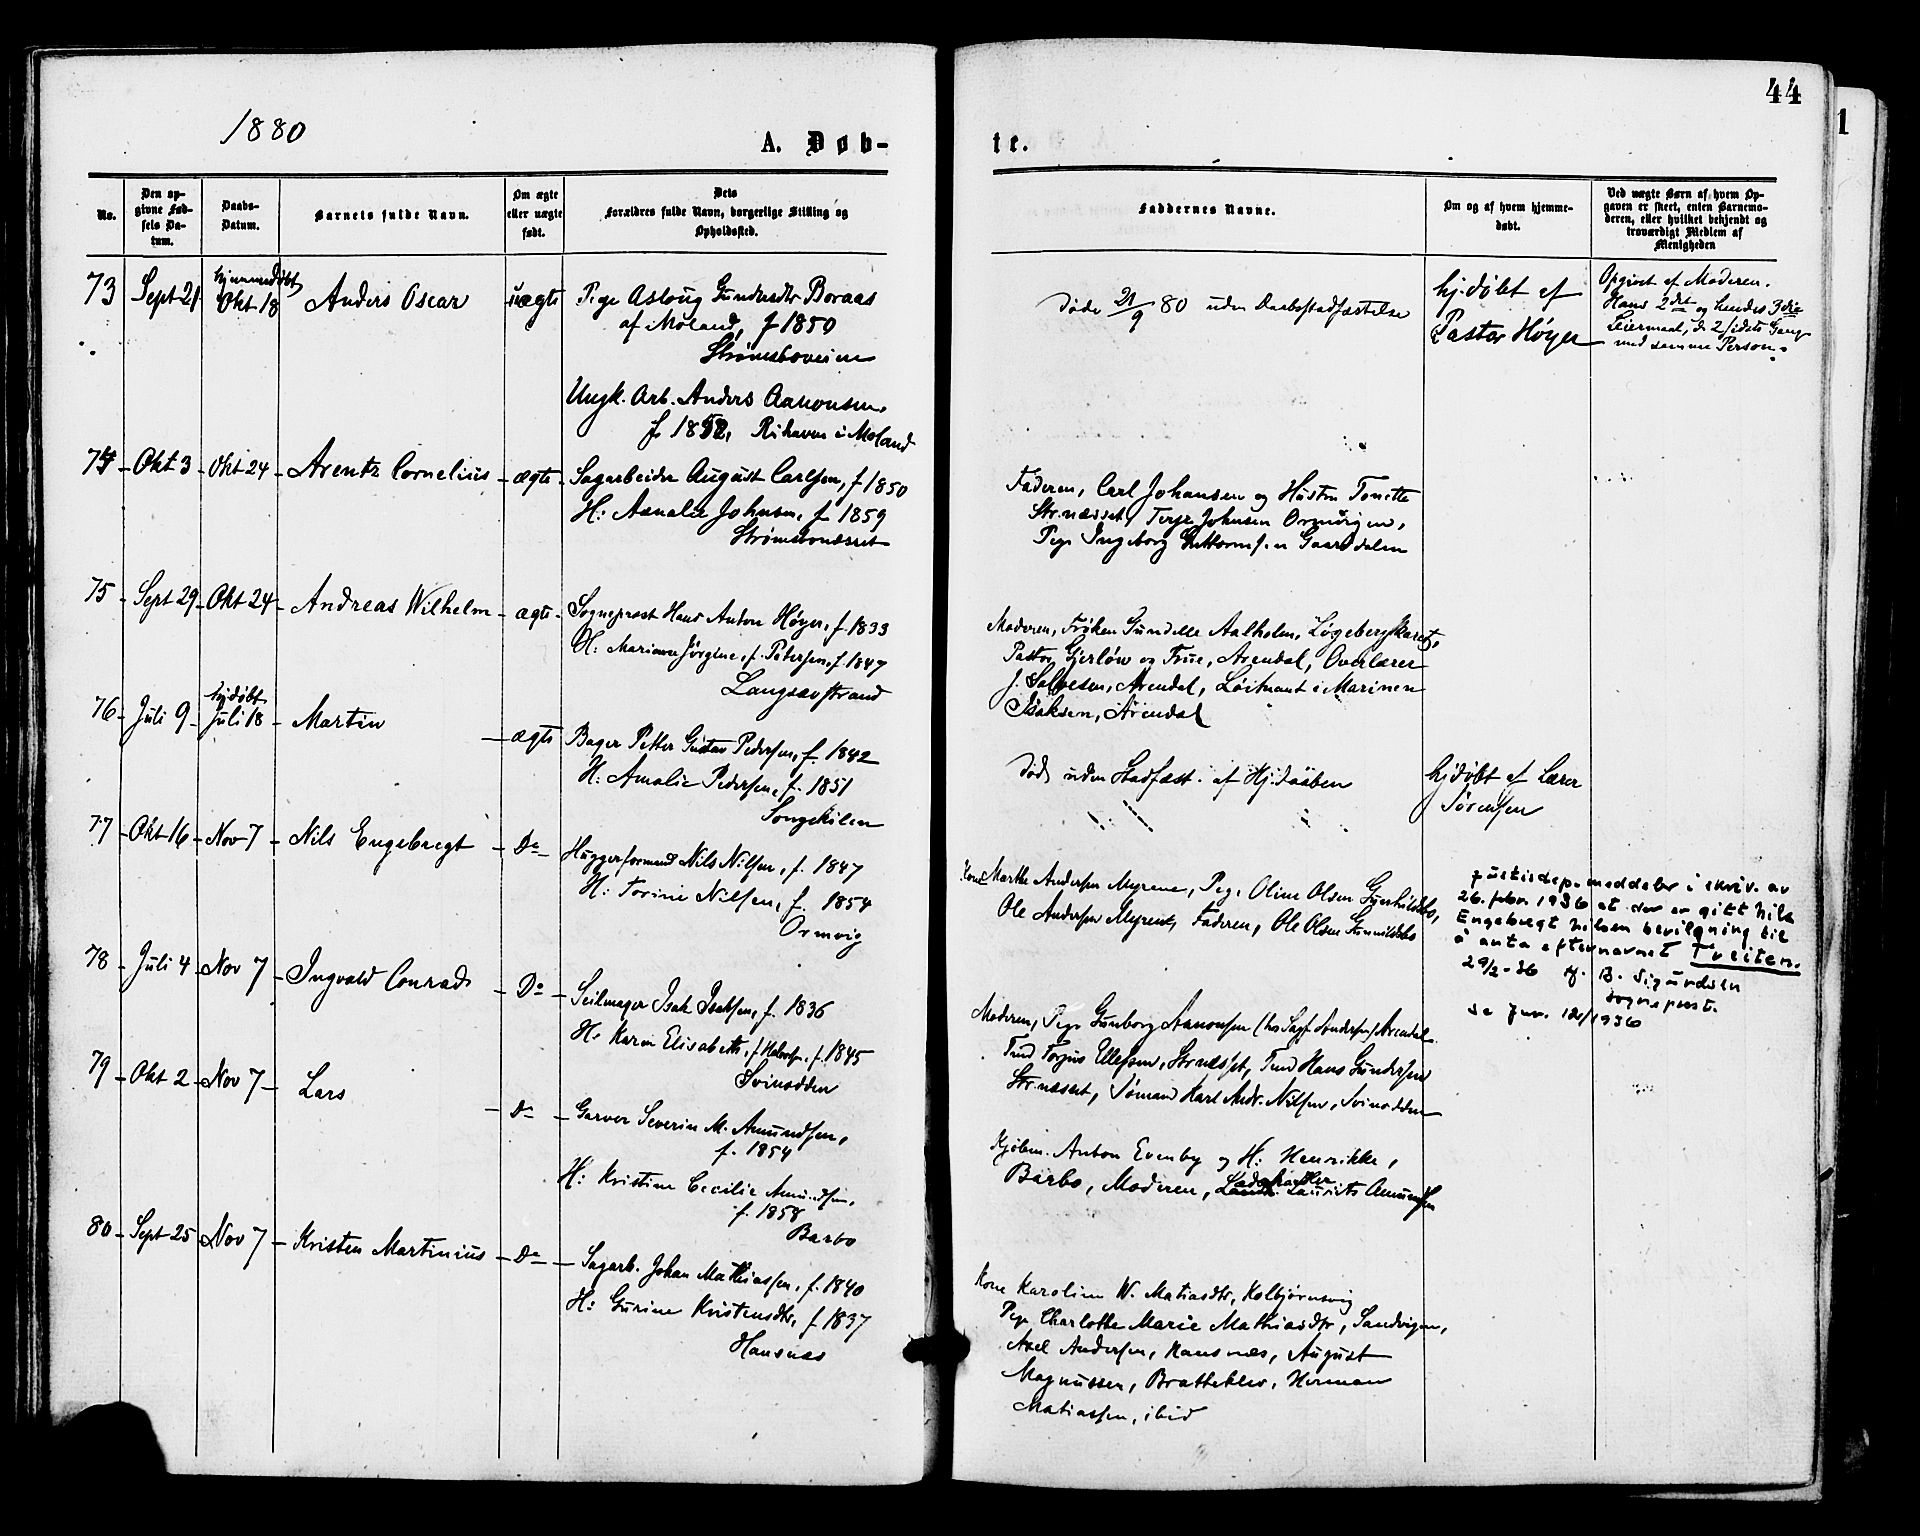 44
1
1880
A. Døb-
te.
No.
Den op-
givne Fød-
sels Da-
tum.
Daabs-
Datum.
Barnets fulde Navn.
Om ægte
eller uægte
født.
Dets
Forældres fulde Navn, borgerlige Stilling og
Opholdssted.
Faddernes Navne.
Om og af hvem hjemme-
døbt.
Ved uægte Børn af hvem Op-
gaven er skeet, enten Barnemo-
deren, eller hvilket bekjendt og
troværdigt Medlem af
Menigheden
73 Sept 21 hjemmedøbt Okt 18 Anders Oscar uægte Pige Asloug Gundersdtr Boraas
af Moland, f 1850
Strømsboveien
Ungk. Arb. Anders Aanonsen,
f. 1852, i Moland
døde 21/9 80 uden Daabsstadfæstelse
hj.døbt af
Pastor Høyer
Opgivet af Moderen.
Hans 2det og hendes 3die
Leiermaal, de 2 sidste Gang
med samme Person.
74 Okt 3 Okt 24 Arentz Cornelius ægte Sagarbeider August Carlsen, f 1850
H: Aanalie Johnsen, f 1859
Strømsbonæsset
Faderen, Carl Johansen og Hustru Tonette
Str.næsset, Terje Johnsen
Pige Ingeborg Guttormsen
75 Sept 29 Okt 24 Andreas Wilhelm ægte Sogneprest Hans Anton Høyer, f. 1833
H: Mariane Jörgine, f. Petersen, f. 1847
Langsævstrand
Moderen, Frøken Gundelle Aalholm,
Pastor Gjerløw og Frue, Arendal, Overlærer
J. Salvesen, Arendal, Løitnant i Marinen
Isaksen, Arendal
76 Juli 9 hjdøbt Juli 18 Martin ægte Bager Petter Gustav Pedersen, f. 1842
H: Amalie Pedersen, f. 1851
Songekilen
død uden Stadfæst. af Hj.daaben
hjdøbt af Lærer
Sørensen
77 Okt 16 Nov 7 Nils Engebregt Do Huggerformand Nils Nilsen, f. 1847
H: Torine Nilsen, f. 1854
Ormvig
Kone Marthe Andersen Myrene, Pige Oline Olsen
Ole Andersen Myrene, Faderen, Ole Olsen
Justisdep. meddeler i skriv. av
26. febr. 1936 at der er gitt Nils
Engebregt Nilsen bevilgning til
å anta efternavnet Tveiten.
29/2-36 B. Sigurdsen
sogneprest.
se Jnr. 121/1936
78 Juli 4 Nov 7 Ingvald Conrad Do Seilmager Isak Isaksen, f. 1836
H: Karen Elisabeth, f. f. 1845
Svinodden
Moderen, Pige Gunborg Aanonsen Arendal
Tønd Torjus Ellefsen, Strnæsset, Hans Gundersen
Strnæsset, Sømand Karl Andr. Nilsen, Svinodden
79 Okt 2 Nov 7 Lars Do Garver Severin M. Amundsen,
f. 1854
H: Kristine Cecilie Amundsen,
f. 1858
Barbo
Kjøbm. Anton Evenby og H: Henrikke,
Barbo, Moderen, Laurits Amundsen
80 Sept 25 Nov 7 Kristen Martinius Do Sagarb. Johan Mathiassen, f. 1840
H: Gurine Kristensdtr, f 1837
Hansnæs
Kone Karoline W. Matiasdtr, Kolbjørnsvig
Pige Charlotte Marie Mathiasdtr, Sandvigen,
Axel Andersen, Hansnæs, August
Magnussen, Bratteklev, Herman
Matiassen, ibid